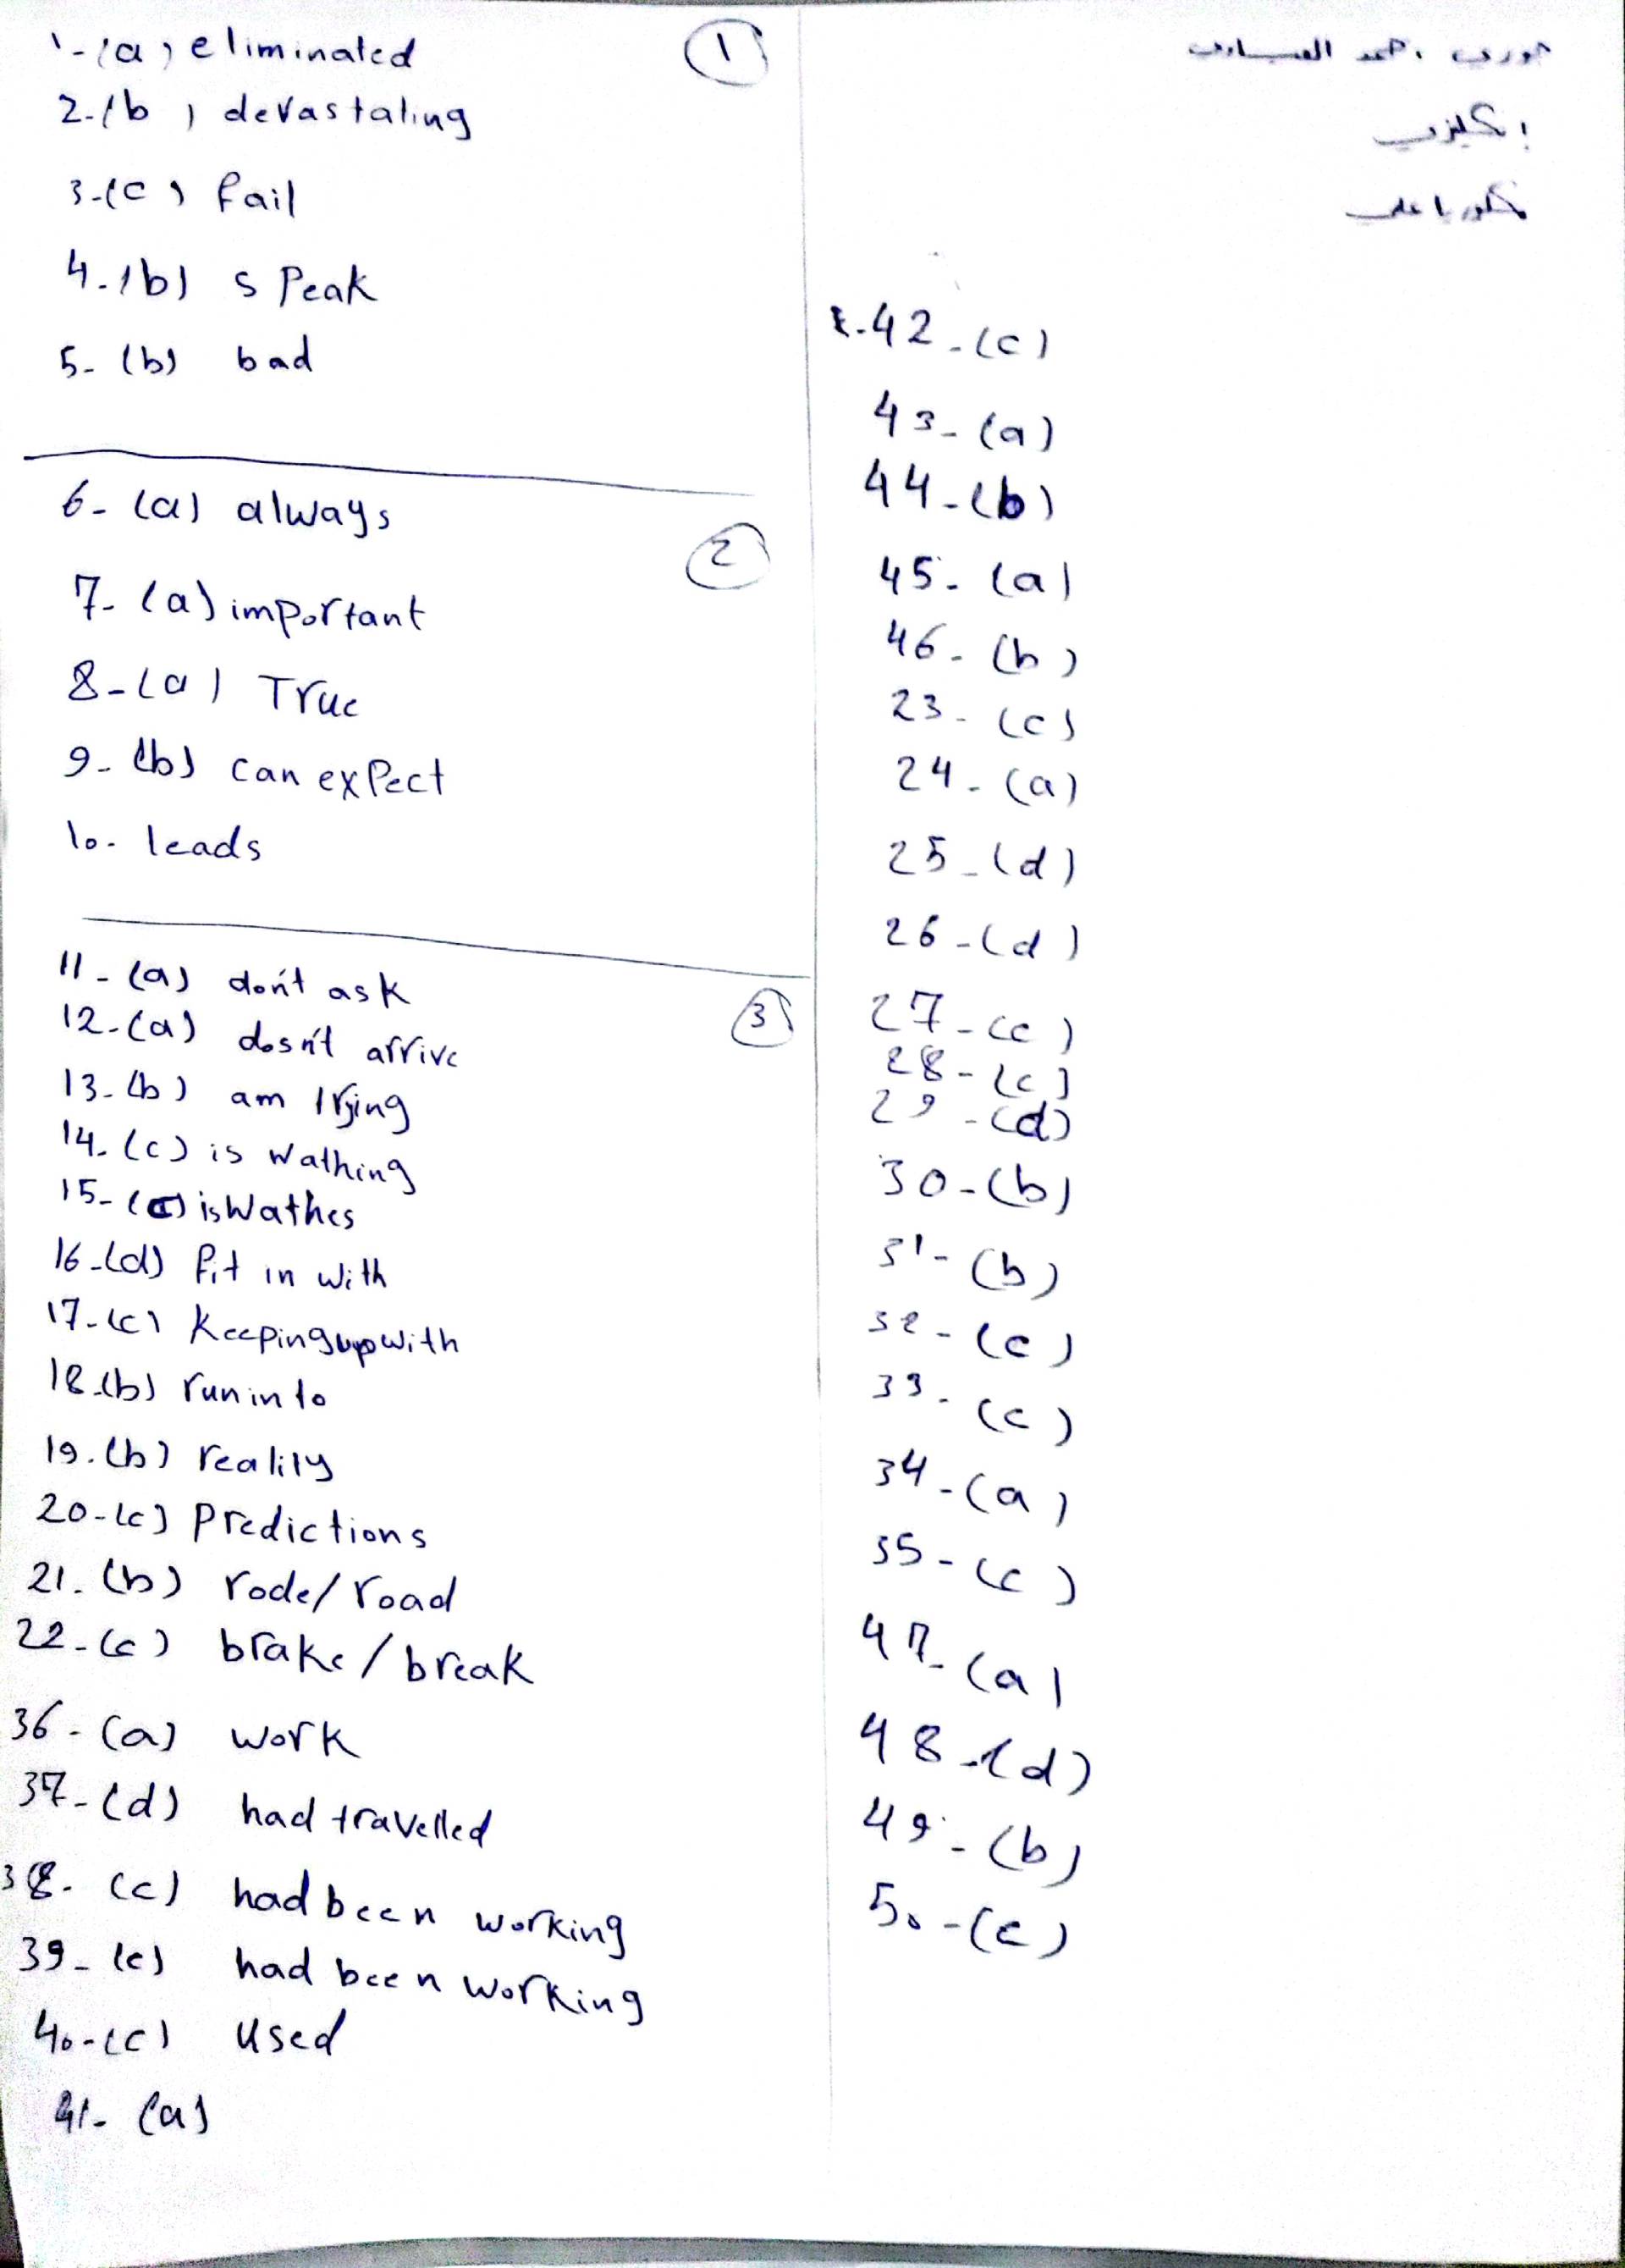 1-(a) eliminated
2-(b) devastaling
3-(c) fail
4-(b) speak
5-(b) bad
1
6-(a) always
7-(a) important
8-(a) True
9-(b) can expect
10- leads
2
11-(a) don't ask
12-(a) dosn't arrive
13-(b) am trying
14-(c) is wathing
15- is Wathes
16-(d) fit in with
17-(c) keepingupwith
18-(b) run into
19-(b) realily
20-(c) predictions
21-(b) rode/road
22-(c) brake/break
36-(a) work
37-(d) had travelled
38-(c) had been working
39-(c) had been working
40-(c) used
41-(a)
3
احمد
42-(c)
43-(a)
44-(b)
45-(a)
46-(b)
23-(c)
24-(a)
25-(d)
26-(d)
27-(c)
28-(c)
29-(d)
30-(b)
31-(b)
32-(c)
33-(c)
34-(a)
35-(c)
47-(a)
48-(d)
49-(b)
50-(c)